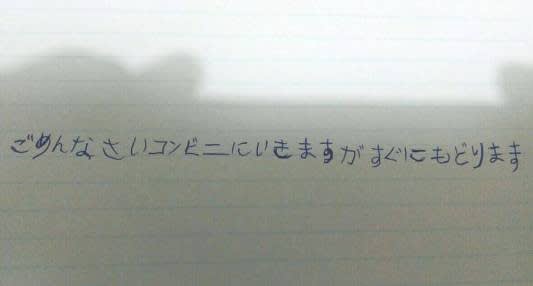 ごめんなさいコンビニにいきますがすぐにもどります